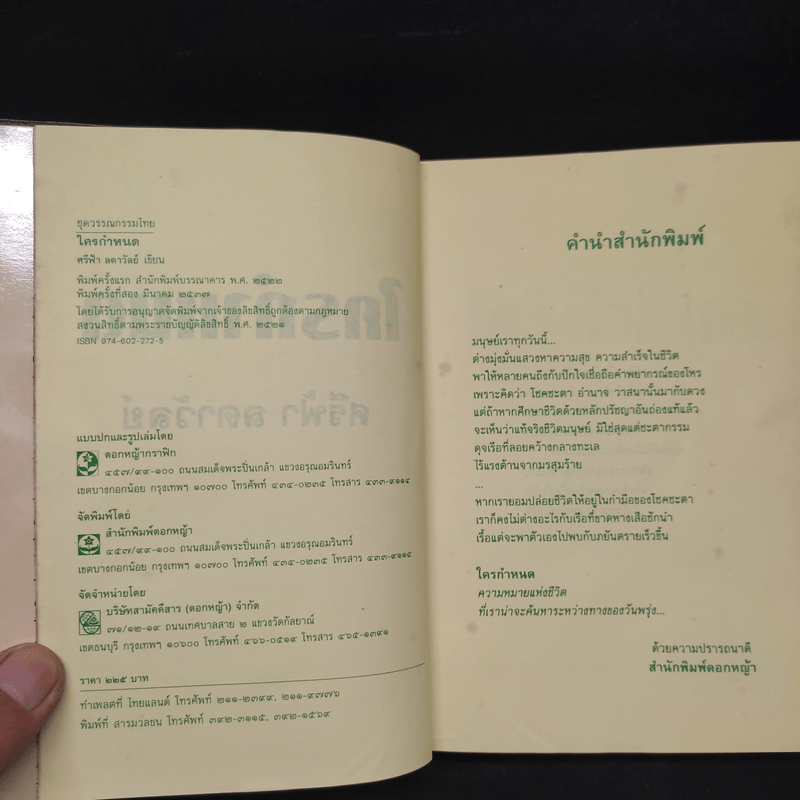 ชุดวรรณกรรมไทย
ใครกำหนด
ศรีฟ้า ลดาวัลย์ เขียน
พิมพ์ครั้งแรก สำนักพิมพ์บรรณาคาร พ.ศ. ๒๕๒๒
พิมพ์ครั้งที่สอง มีนาคม ๒๕๓๗
โดยได้รับการอนุญาตจัดพิมพ์จากเจ้าของลิขสิทธิ์ถูกต้องตามกฎหมาย
สงวนสิทธิ์ตามพระราชบัญญัติลิขสิทธิ์ พ.ศ. ๒๕๒๑
ISBN 974-602-272-5
แบบปกและรูปเล่มโดย
ดอกหญ้ากราฟิก
๔๕๗/๙๙-๑๐๐ ถนนสมเด็จพระปิ่นเกล้า แขวงอรุณอมรินทร์
เขตบางกอกน้อย กรุงเทพฯ ๑๐๗๐๐ โทรศัพท์ ๔๓๔-๐๒๓๕ โทรสาร ๔๓๓-๙๑๑๔
จัดพิมพ์โดย
สำนักพิมพ์ดอกหญ้า
๔๕๗/๙๙-๑๐๐ ถนนสมเด็จพระปิ่นเกล้า แขวงอรุณอมรินทร์
เขตบางกอกน้อย กรุงเทพฯ ๑๐๗๐๐ โทรศัพท์ ๔๓๔-๐๒๓๕ โทรสาร ๔๓๓-๙๑๑๔
จัดจำหน่ายโดย
บริษัทสามัคคีสาร (ดอกหญ้า) จำกัด
๗๑/๑๒-๑๙ ถนนเทศบาลสาย ๒ แขวงวัดกัลยาณ์
เขตธนบุรี กรุงเทพฯ ๑๐๖๐๐ โทรศัพท์ ๔๖๖-๐๕๑๙ โทรสาร ๔๖๕-๑๓๙๑
ราคา ๒๒๕ บาท
ทำเพลตที่ ไทยแลนด์ โทรศัพท์ ๒๑๑-๒๓๙๙, ๒๑๑-๙๗๗๖
พิมพ์ที่ สารมวลชน โทรศัพท์ ๓๙๒-๓๑๑๕, ๓๙๒-๑๕๖๙
คำนำสำนักพิมพ์
มนุษย์เราทุกวันนี้...
ต่างมุ่งมั่นแสวงหาความสุข ความสำเร็จในชีวิต
พาให้หลายคนถึงกับปักใจเชื่อถือคำพยากรณ์ของโหร
เพราะคิดว่า โชคชะตา อำนาจ วาสนานั้นมากับดวง
แต่ถ้าหากศึกษาชีวิตด้วยหลักปรัชญาอันถ่องแท้แล้ว
จะเห็นว่าแท้จริงชีวิตมนุษย์ มิใช่สุดแต่ชะตากรรม
ดุจเรือที่ลอยคว้างกลางทะเล
ไร้แรงต้านจากมรสุมร้าย
...
หากเรายอมปล่อยชีวิตให้อยู่ในกำมือของโชคชะตา
เราก็คงไม่ต่างอะไรกับเรือที่ขาดหางเสือชักนำ
เรื้อแต่จะพาตัวเองไปพบกับภยันตรายเร็วขึ้น
ใครกำหนด
ความหมายแห่งชีวิต
ที่เราน่าจะค้นหาระหว่างทางของวันพรุ่ง...
ด้วยความปรารถนาดี
สำนักพิมพ์ดอกหญ้า